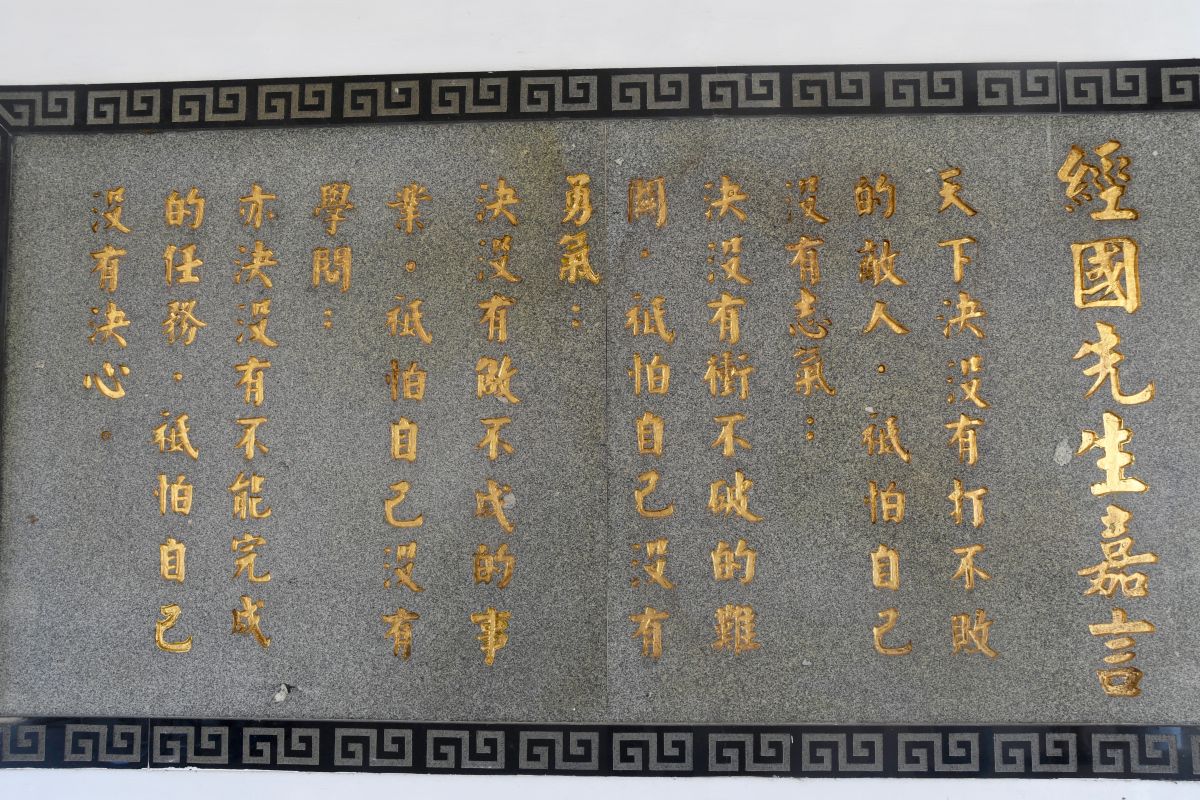 經國先生嘉言
天下決没有打不敗
的敵人．祇怕自己
没有志氣：
決没有衝不破的難
關．祇怕自己没有
勇氣：
決没有做不成的事
業．祇怕自己没有
學問：
亦決没有不能完成
的任務．祇怕自己
没有決心